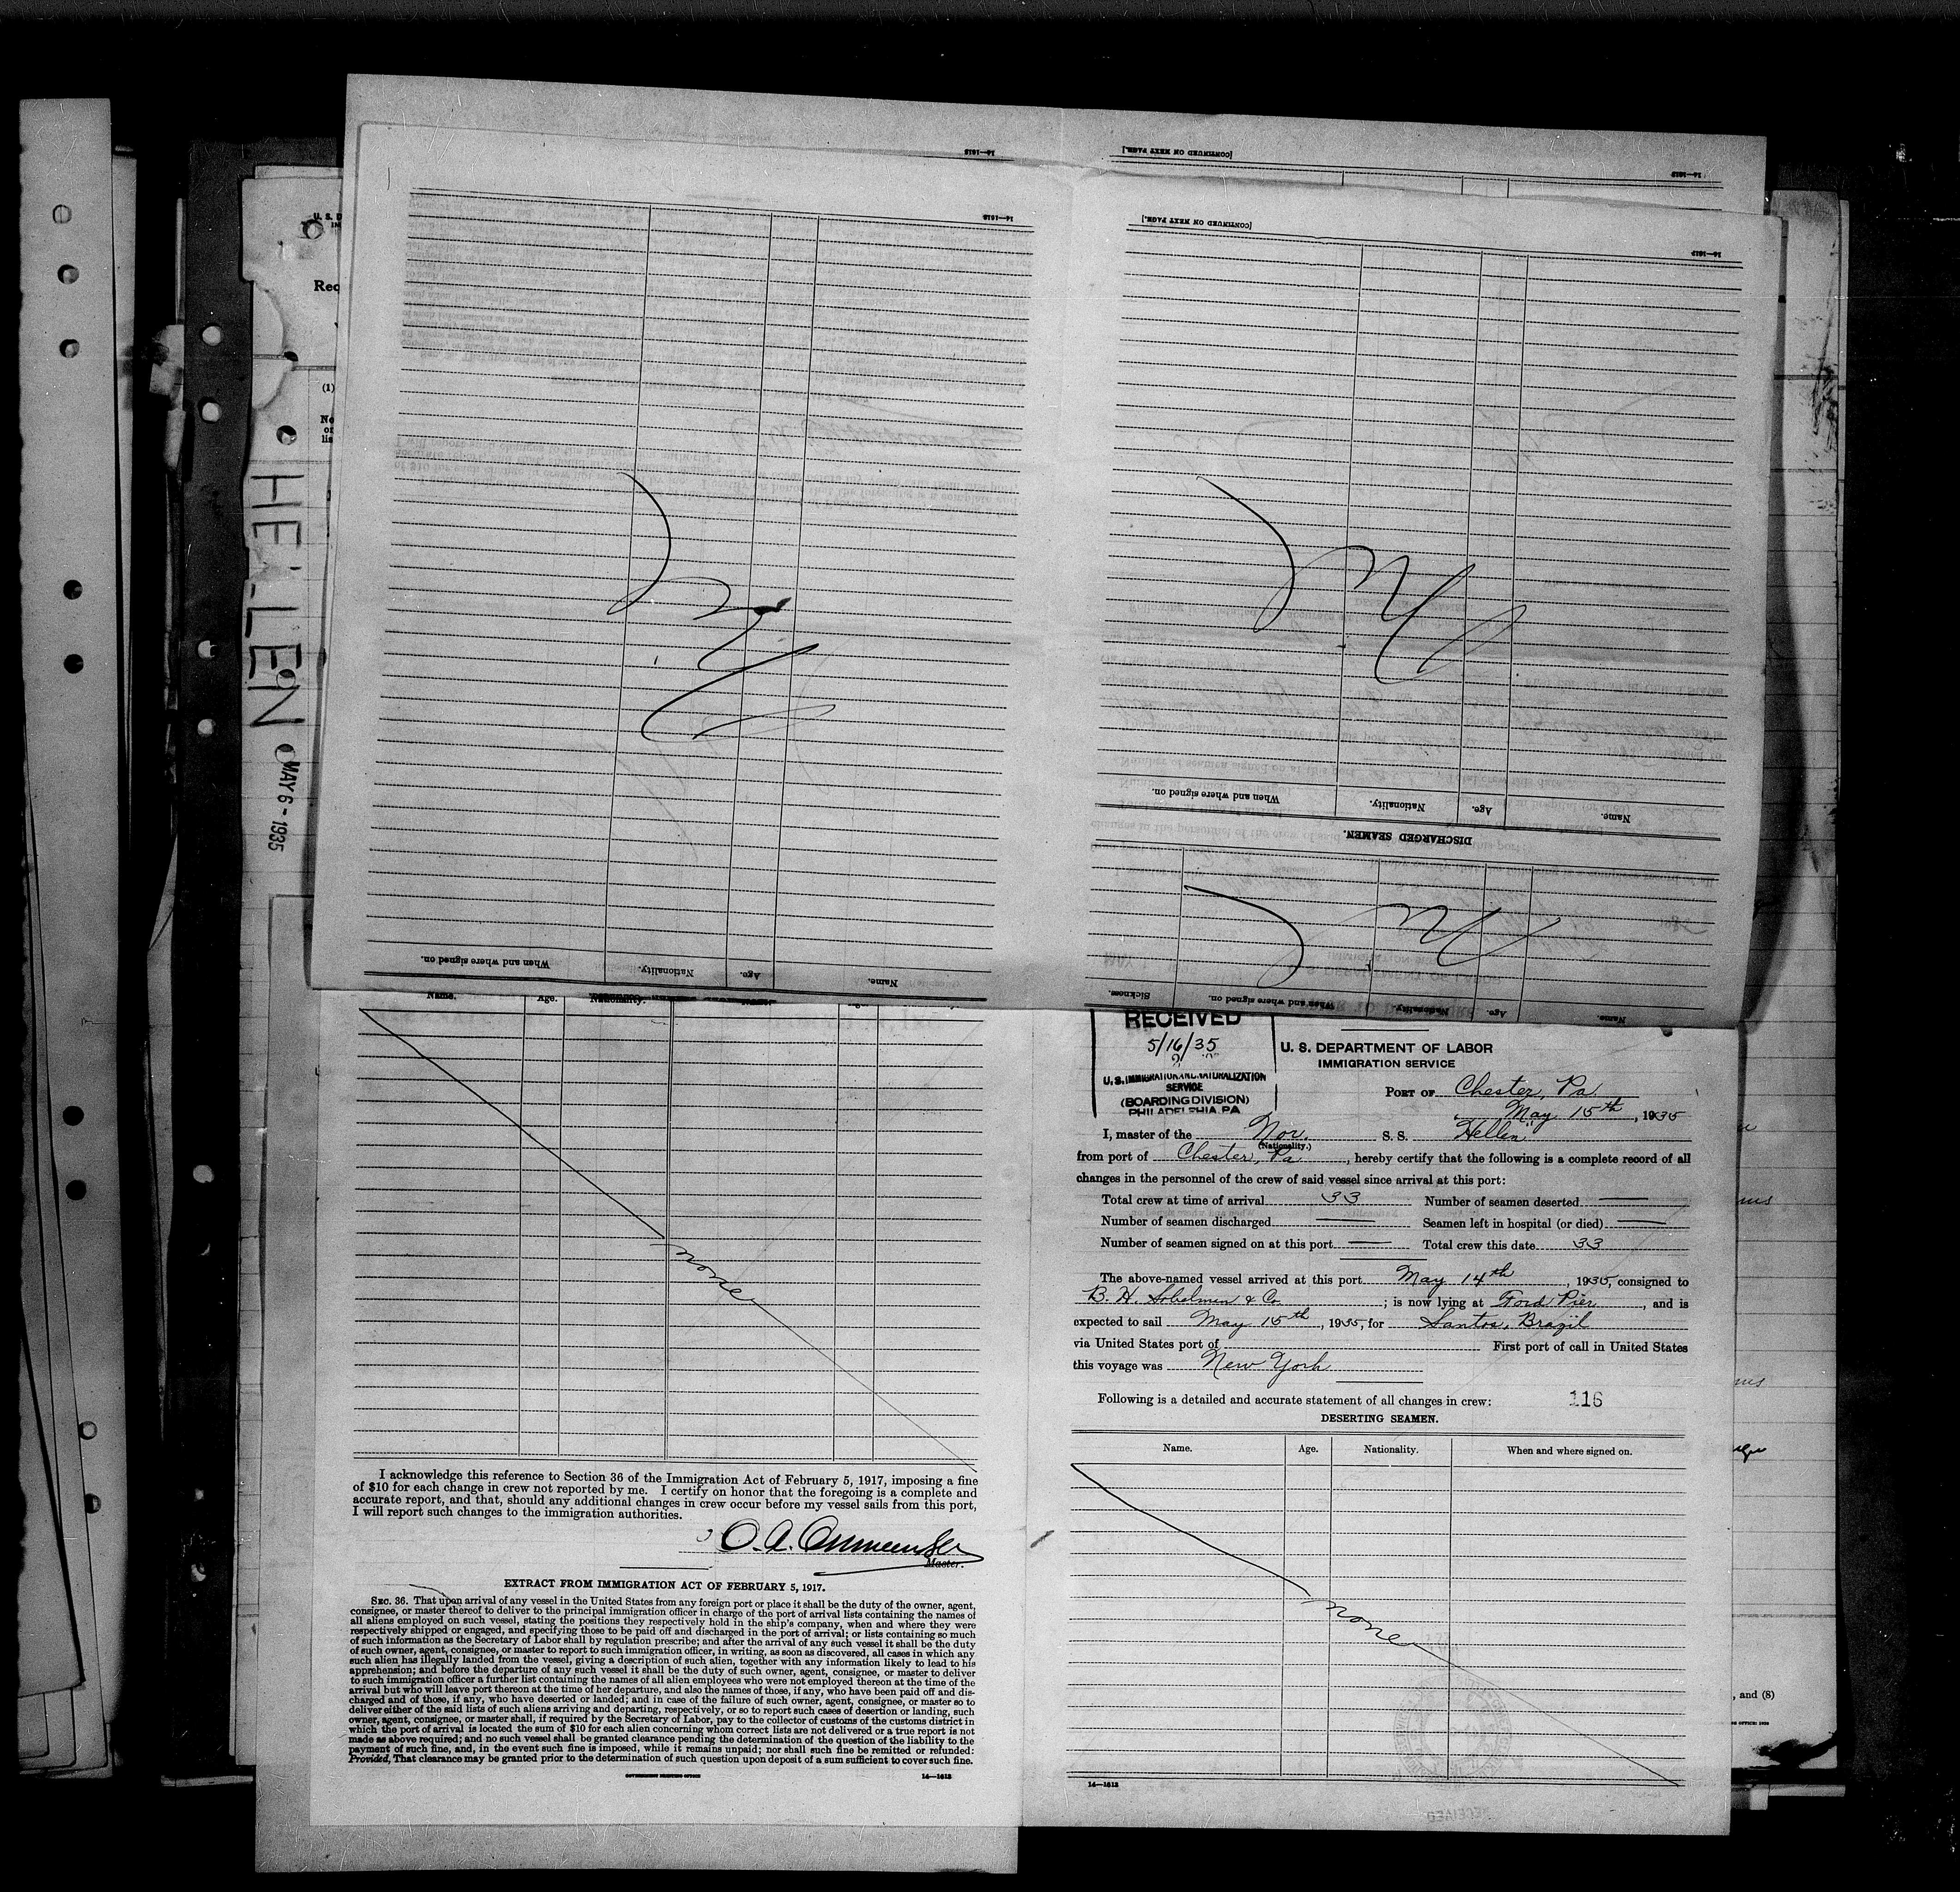 U. S. D
Rec
(1)
No
or
lis
HELLEN
MAY 6 - 1935
14—1613
[CONTINUED ON NEXT PAGE.]
14—1613
14—1613
[CONTINUED ON NEXT PAGE.]
14—1613
When and where signed on.
Nationality.
Age.
Name.
DISCHARGED SEAMEN.
When and where signed on.
Nationality.
Age.
Name.
Sickness.
When and where signed on.
Nationality.
Age.
Name.
Name.
Age.
Nationality.
none
I acknowledge this reference to Section 36 of the Immigration Act of February 5, 1917, imposing a fine
of $10 for each change in crew not reported by me. I certify on honor that the foregoing is a complete and
accurate report, and that, should any additional changes in crew occur before my vessel sails from this port,
I will report such changes to the immigration authorities.
O. A.
Master.
EXTRACT FROM IMMIGRATION ACT OF FEBRUARY 5, 1917.
SEC. 36. That upon arrival of any vessel in the United States from any foreign port or place it shall be the duty of the owner, agent,
consignee, or master thereof to deliver to the principal immigration officer in charge of the port of arrival lists containing the names of
all aliens employed on such vessel, stating the positions they respectively hold in the ship's company, when and where they were
respectively shipped or engaged, and specifying those to be paid off and discharged in the port of arrival; or lists containing so much
of such information as the Secretary of Labor shall by regulation prescribe; and after the arrival of any such vessel it shall be the duty
of such owner, agent, consignee, or master to report to such immigration officer, in writing, as soon as discovered, all cases in which any
such alien has illegally landed from the vessel, giving a description of such alien, together with any information likely to lead to his
apprehension; and before the departure of any such vessel it shall be the duty of such owner, agent, consignee, or master to deliver
to such immigration officer a further list containing the names of all alien employees who were not employed thereon at the time of the
arrival but who will leave port thereon at the time of her departure, and also the names of those, if any, who have been paid off and dis-
charged and of those, if any, who have deserted or landed; and in case of the failure of such owner, agent, consignee, or master so to
deliver either of the said lists of such aliens arriving and departing, respectively, or so to report such cases of desertion or landing, such
owner, agent, consignee, or master shall, if required by the Secretary of Labor, pay to the collector of customs of the customs district in
which the port of arrival is located the sum of $10 for each alien concerning whom correct lists are not delivered or a true report is not
made as above required; and no such vessel shall be granted clearance pending the determination of the question of the liability to the
payment of such fine, and, in the event such fine is imposed, while it remains unpaid; nor shall such fine be remitted or refunded:
Provided, That clearance may be granted prior to the determination of such question upon deposit of a sum sufficient to cover such fine.
GOVERNMENT PRINTING OFFICE
14—1613
RECEIVED
5/16/35
U. S. IMMIGRATION AND NATURALIZATION
SERVICE
(BOARDING DIVISION)
PHILADELPHIA, PA.
U. S. DEPARTMENT OF LABOR
IMMIGRATION SERVICE
PORT OF Chester, Pa
May 15th, 1935
I, master of the Nor. S. S. "Hellen"
(Nationality.)
from port of Chester, Pa, hereby certify that the following is a complete record of all
changes in the personnel of the crew of said vessel since arrival at this port:
Total crew at time of arrival 33 Number of seamen deserted —
Number of seamen discharged — Seamen left in hospital (or died) —
Number of seamen signed on at this port — Total crew this date 33
The above-named vessel arrived at this port May 14th, 1935, consigned to
B. H. Sobelmen & Co ; is now lying at Ford Pier, and is
expected to sail May 15th, 1935, for Santos, Brazil
via United States port of First port of call in United States
this voyage was New York
Following is a detailed and accurate statement of all changes in crew: 116
DESERTING SEAMEN.
Name. Age. Nationality. When and where signed on.
none
14—1613
RECEIVED
, and (8)